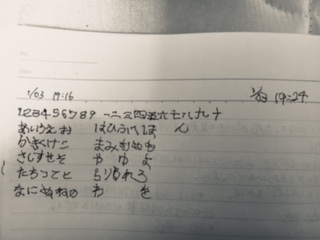 1/03 19:16
1/3 19:24
123456789 一二三四五六七八九十
あいうえお はひふへほ ん
かきくけこ まみむめも
さしすせそ や ゆ よ
たちつてと らりるれろ
なにぬねの わ を